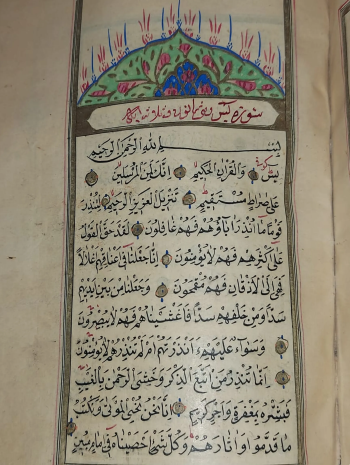 سورة يس
بسم الله الرحمن الرحيم
يس والقرآن الحكيم انك لمن المرسلين
على صراط مستقيم تنزيل العزيز الرحيم لتنذر
قوما ما انذر اباؤهم فهم غافلون لقد حق القول
على اكثرهم فهم لا يؤمنون انا جعلنا في اعناقهم اغلالا
فهي الى الاذقان فهم مقمحون وجعلنا من بين ايديهم
سدا ومن خلفهم سدا فاغشيناهم فهم لا يبصرون
وسواء عليهم ءانذرتهم ام لم تنذرهم لا يؤمنون
انما تنذر من اتبع الذكر وخشي الرحمن بالغيب
فبشره بمغفرة واجر كريم انا نحن نحيي الموتى ونكتب
ما قدموا واثارهم وكل شيء احصيناه في امام مبين